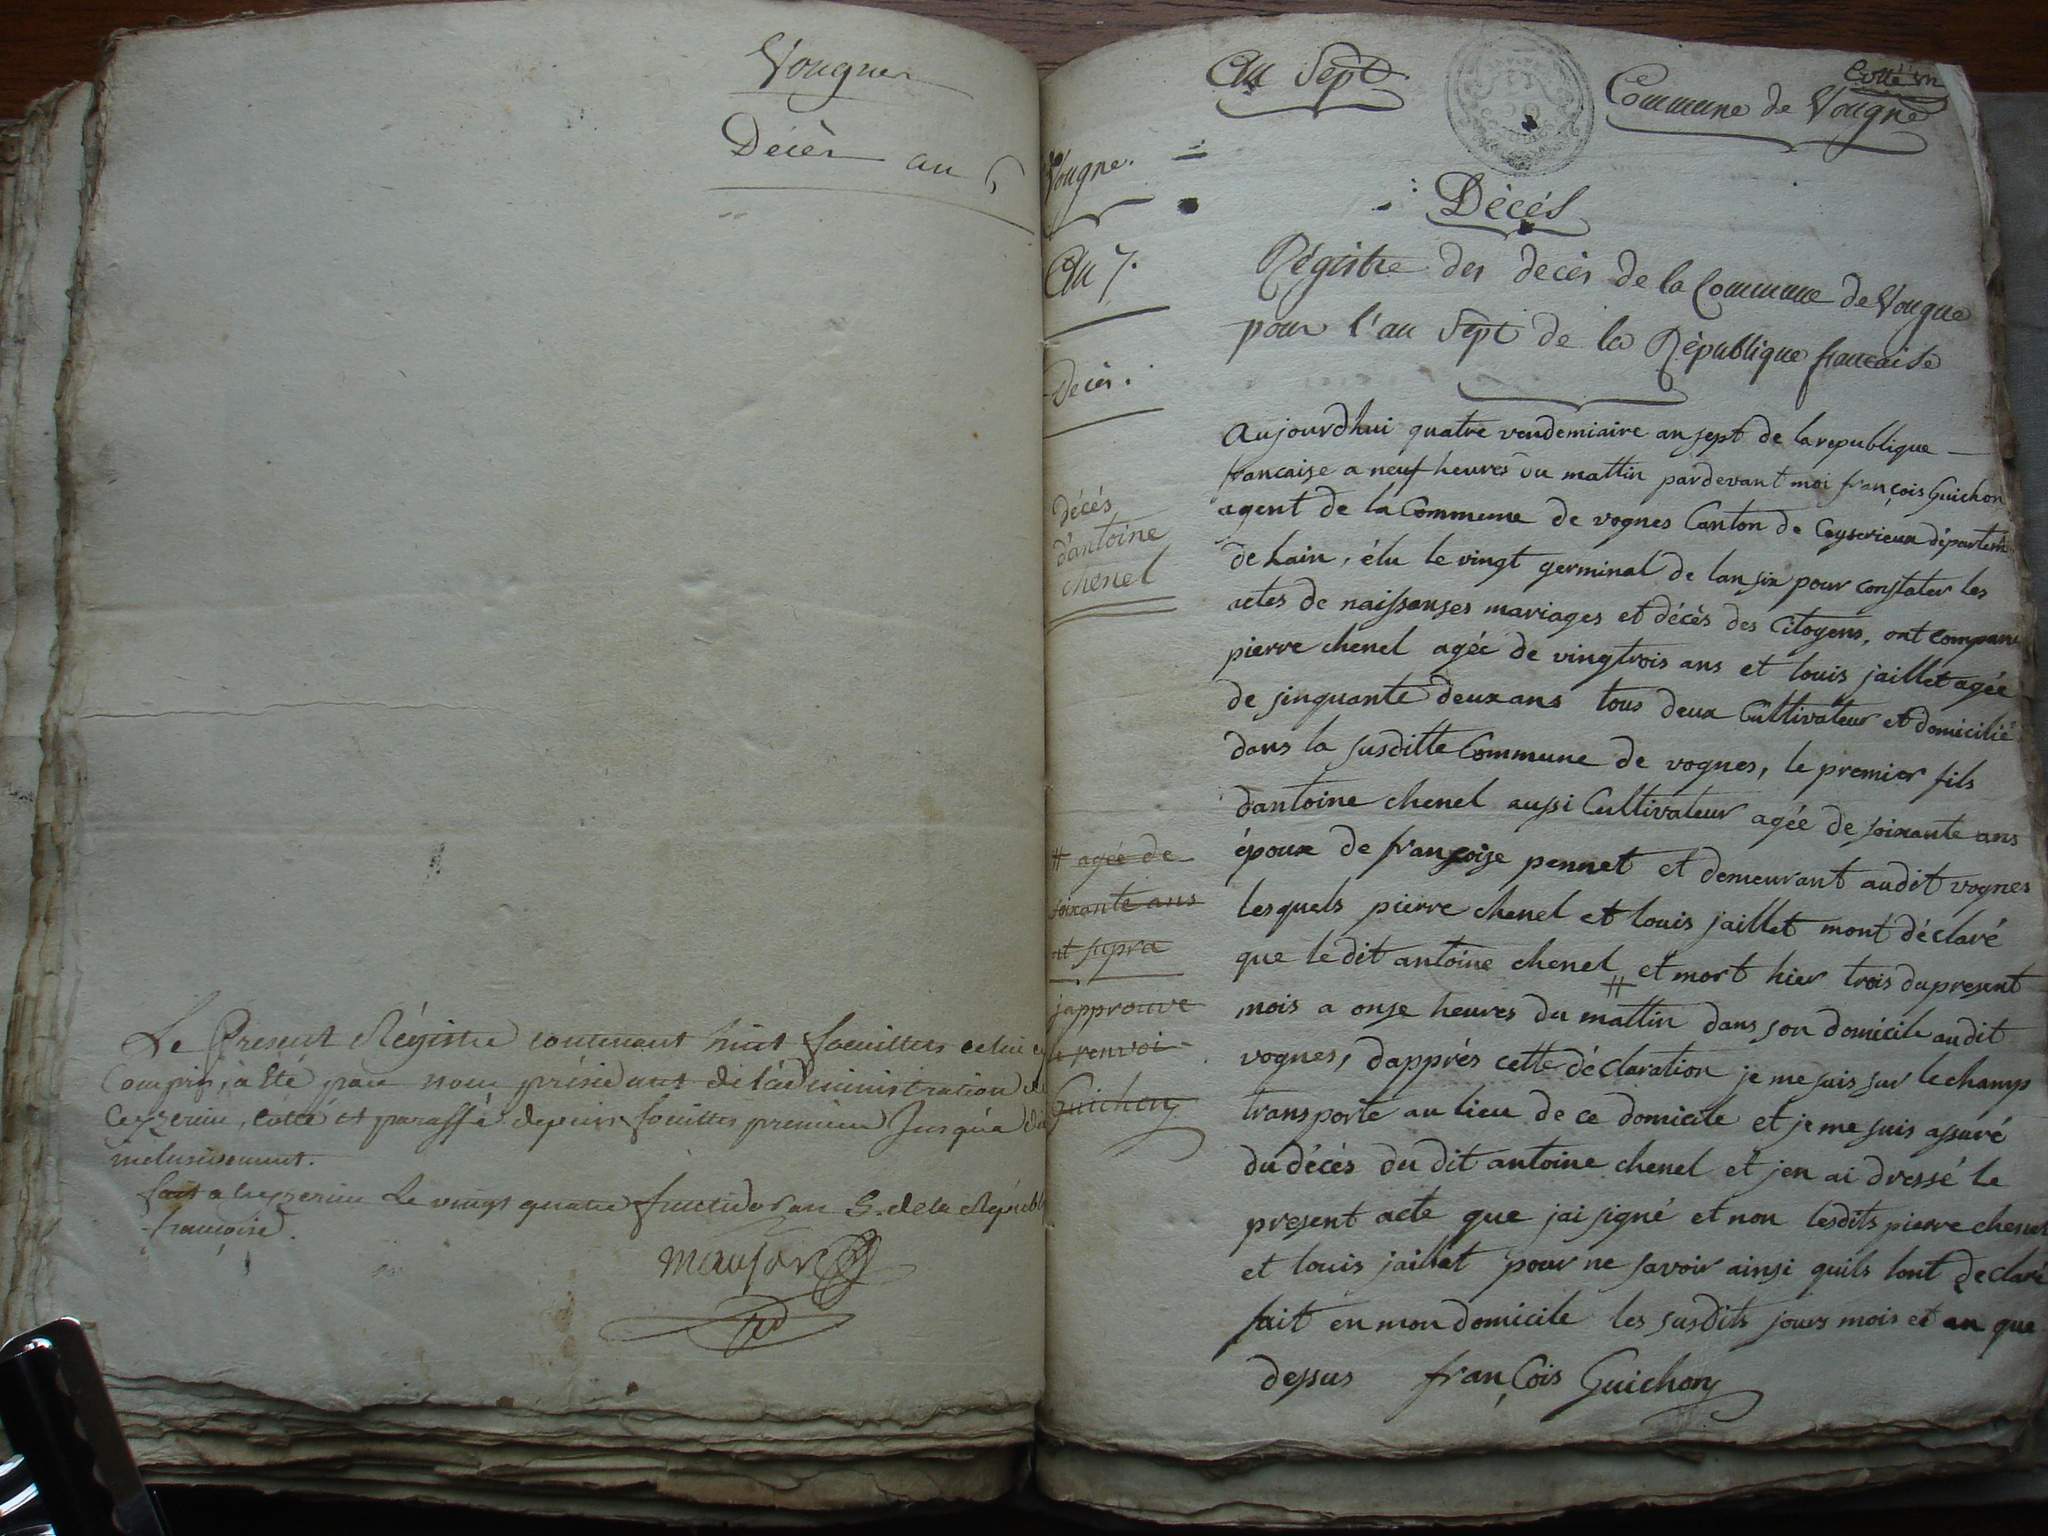 Vougnes
Décès an 6
Le Present Régistre contenant huit feuillets celui
Compris, a été par nous président de l'administration
Ceyzerieu, cotté et paraffé depuis feuillet premier Jusqu'à
inclusivement.
fait a Ceyzerieu Le vingt quatre fructidor an 5. de la Républ
francoise.
An Sept
Commune de Vougne
Cotté un
Vougne.
An 7.
Décès.
Décés
Régistre des decès de la Commune de Vougne
pour l'an Sept de la République francaise
décés
d'antoine
chenel
Aujourdhui quatre vendemiaire an sept de la republique
francaise a neuf heures du mattin pardevant moi françois Guichon
agent de la Commune de vognes Canton de Ceyserieux département
de lain, élu le vingt germinal de lan six pour constater les
actes de naissanses mariages et décès des Citoyens, ont comparu
pierre chenel agée de vingtrois ans et louis jaillet agée
de sinquante deux ans tous deux Cultivateur et domicilié
dans la susditte Commune de vognes, le premier fils
dantoine chenel aussi Cultivateur agée de soixante ans
époux de françoise pennet et demeurant audit vognes
lesquels pierre chenel et louis jaillet mont déclaré
que ledit antoine chenel # et mort hier trois du present
mois a onse heures du mattin dans son domicile audit
vognes, dapprés cette déclaration je me suis sur le champ
transporté au lieu de ce domicile et je me suis assuré
du décès du dit antoine chenel et jen ai dressé le
present acte que jai signé et non lesdits pierre chenel
et louis jaillet pour ne savoir ainsi quils lont declaré
fait en mon domicile les susdits jours mois et an que
dessus françois Guichon
# agée de
soixante ans
ut supra
japprouve
le renvoi
Guichon